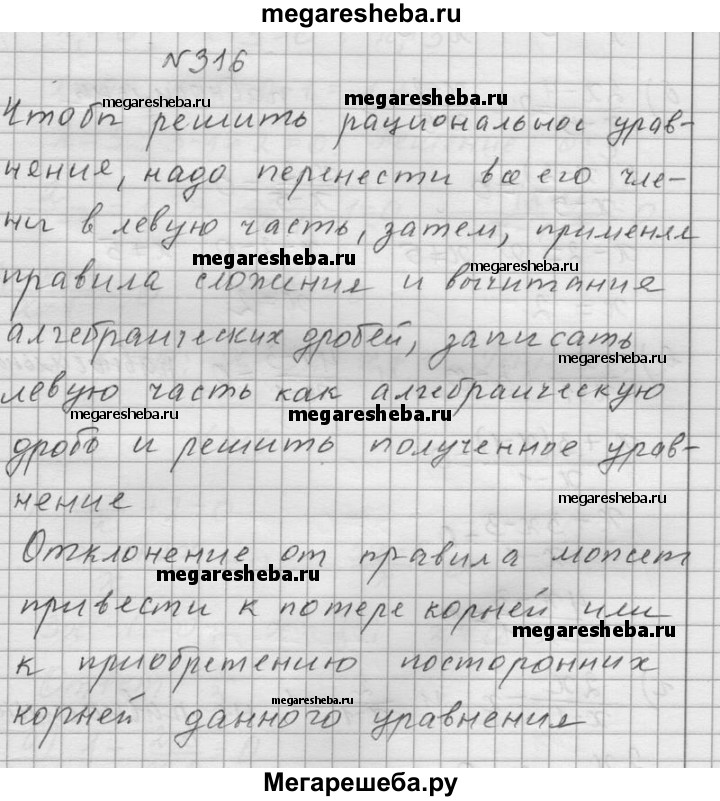 megaresheba.ru
№316
megaresheba.ru megaresheba.ru
Чтобы решить рациональное урав-
нение, надо перенести все его чле-
ны в левую часть, затем, применяя
megaresheba.ru megaresheba.ru
правила сложения и вычитания
алгебраических дробей, записать
megaresheba.ru
левую часть как алгебраическую
megaresheba.ru megaresheba.ru
дробь и решить полученное урав-
нение
megaresheba.ru
Отклонение от правила может
megaresheba.ru
привести к потере корней или
megaresheba.ru
к приобретению посторонних
megaresheba.ru
корней данного уравнения
Мегарешеба.ру